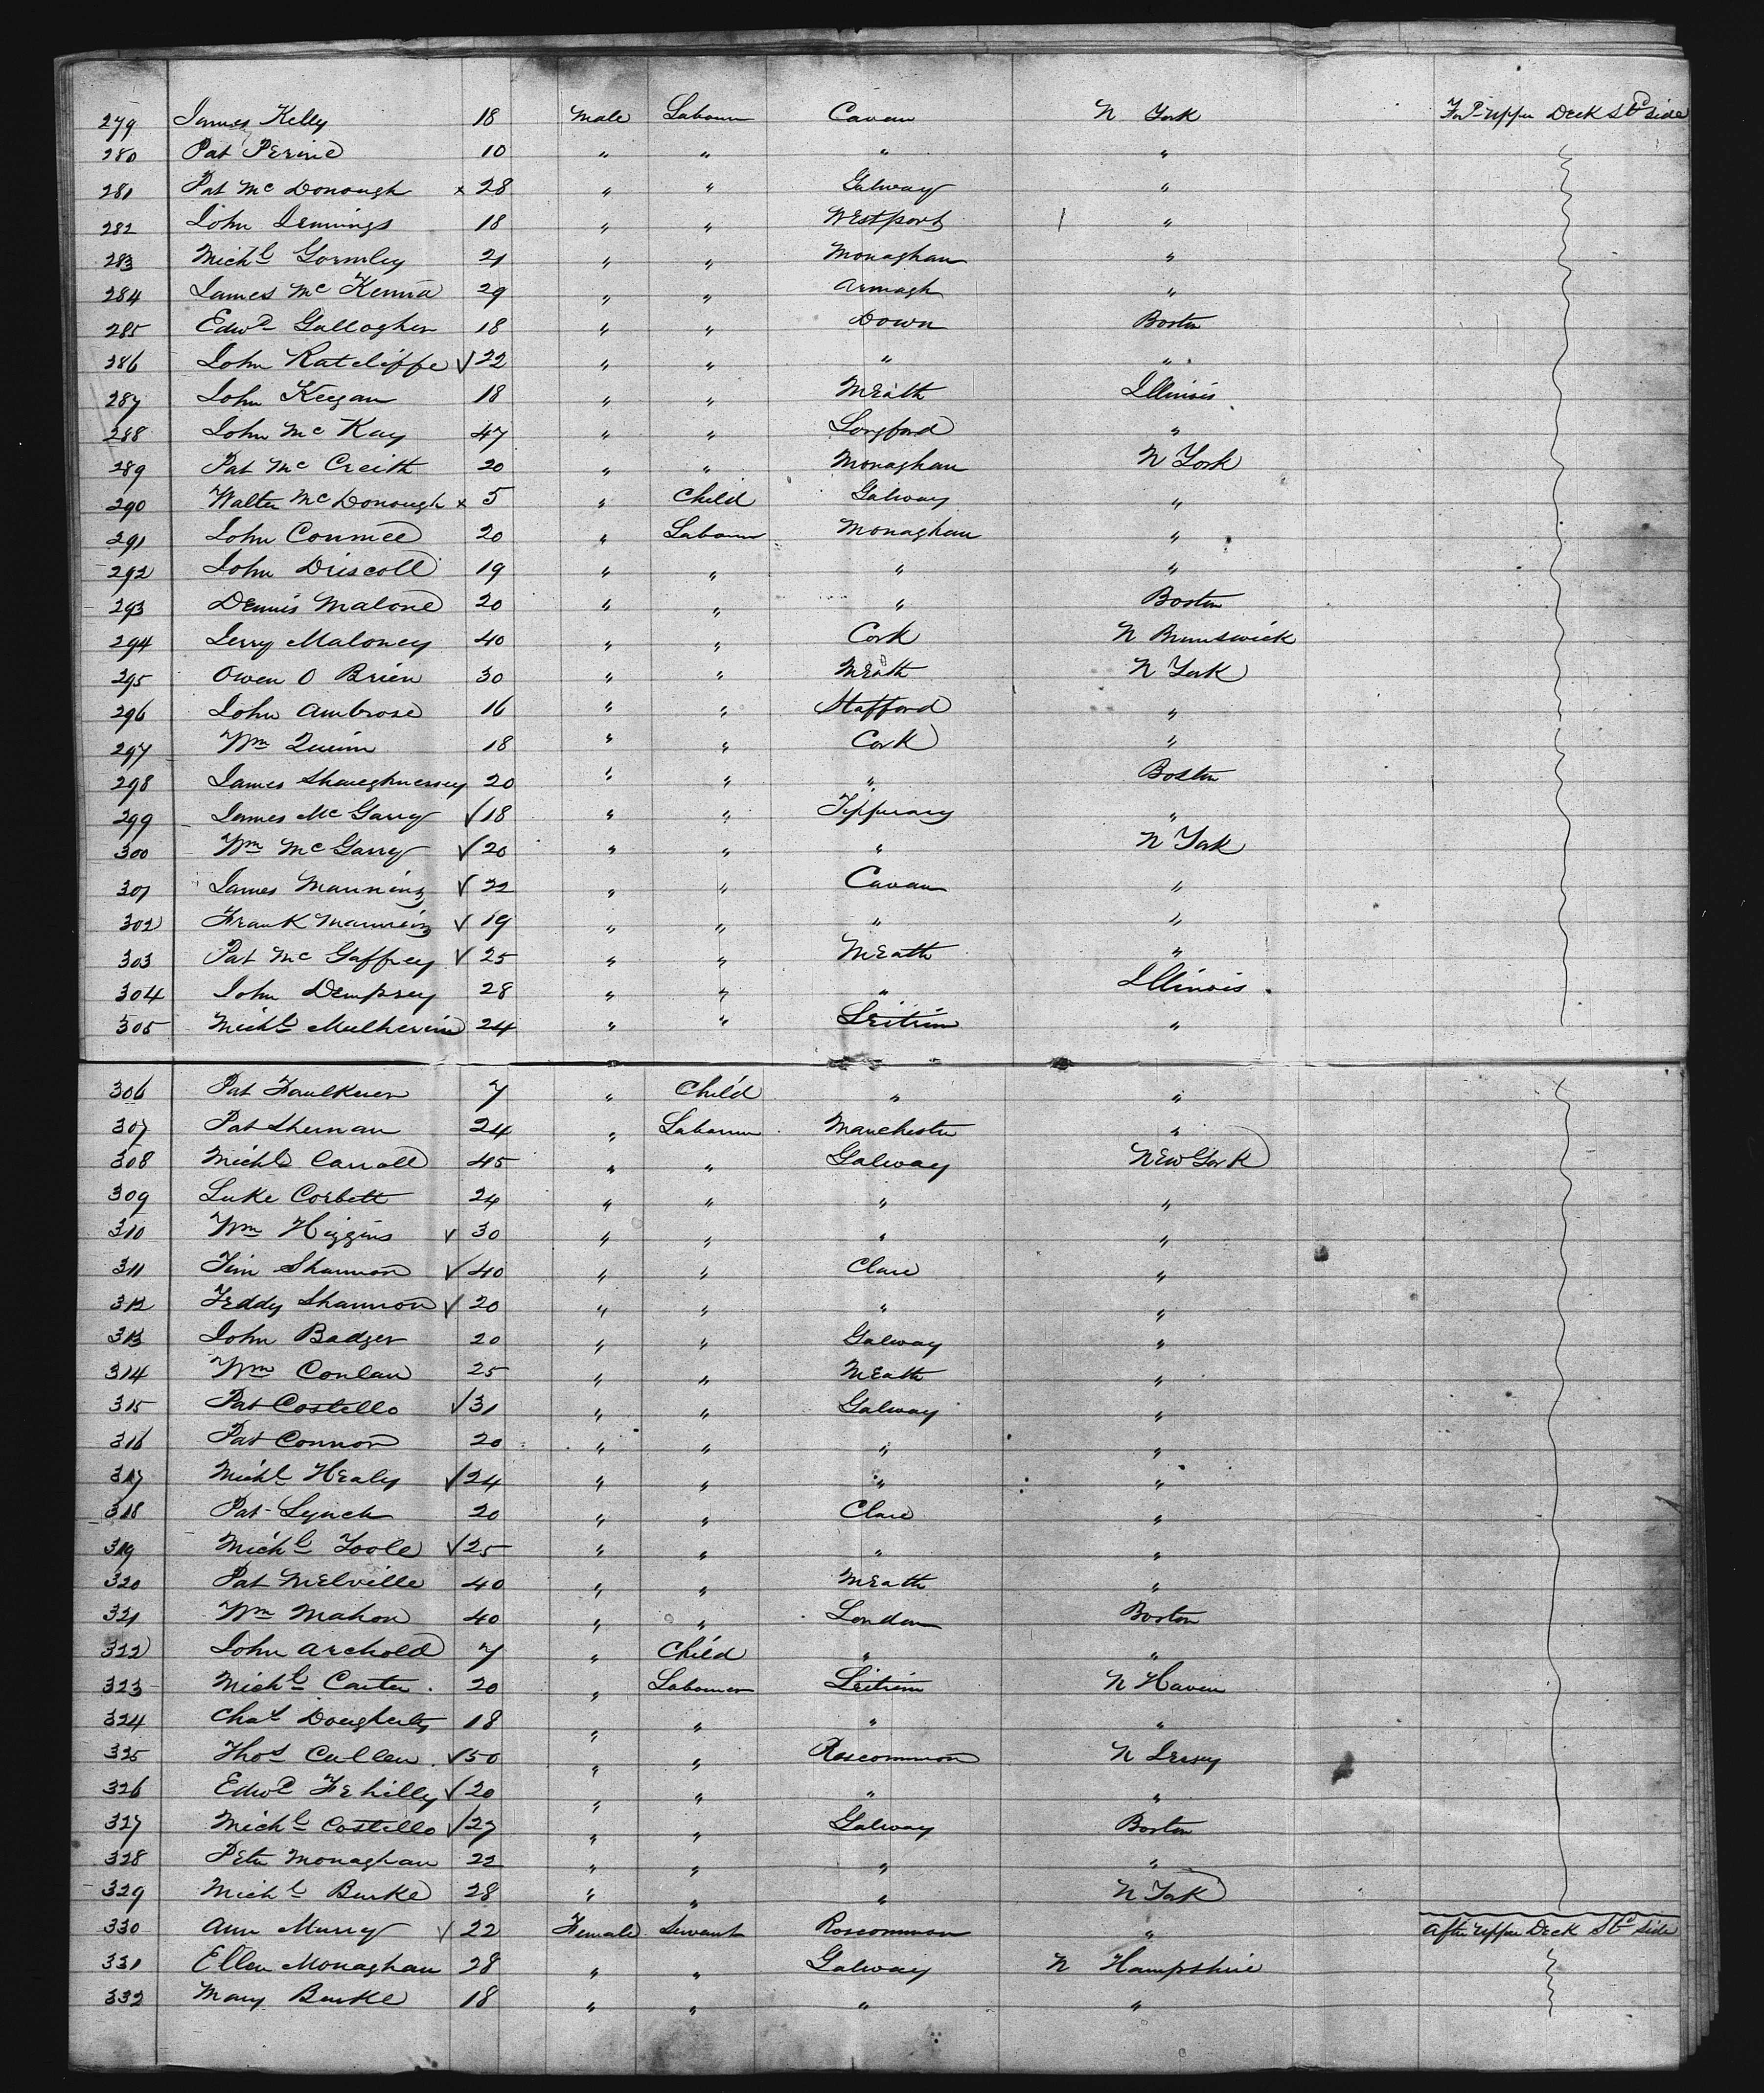 279 James Kelly 18 Male Labourer Cavan N York For'd Upper Deck Stb'd side
280 Pat Perine 10 " " " "
281 Pat McDonough x 28 " " Galway "
282 John Jennings 18 " " Westport "
283 Michl Gormley 21 " " Monaghan "
284 James McKenna 29 " " Armagh "
285 Edwd Gallagher 18 " " Down Boston
286 John Ratcliffe √ 22 " " " "
287 John Keegan 18 " " Meath Illinois
288 John McKay 47 " " Longford "
289 Pat McCreith 20 " " Monaghan N York
290 Walter McDonough x 5 " Child Galway "
291 John Conmee 20 " Labour Monaghan "
292 John Driscoll 19 " " " "
293 Dennis Malone 20 " " " Boston
294 Jerry Maloney 40 " " Cork N Brunswick
295 Owen O Brien 30 " " Meath N York
296 John Ambrose 16 " " Stafford "
297 Wm Quinn 18 " " Cork "
298 James Shaughnessey 20 " " " Boston
299 James McGarry √ 18 " " Tipperary "
300 Wm McGarry √ 20 " " " N York
301 James Manning √ 22 " " Cavan "
302 Frank Manning √ 19 " " " "
303 Pat McGaffrey √ 25 " " Meath "
304 John Dempsey 28 " " " Illinois
305 Michl Mulherin 24 " " Leitrim "
306 Pat Faulkner 7 " Child " "
307 Pat Shernan 24 " Labourer Manchester "
308 Michl Carroll 45 " " Galway New York
309 Luke Corbett 24 " " " "
310 Wm Higgins √ 30 " " " "
311 Tim Shannon √ 40 " " Clare "
312 Teddy Shannon √ 20 " " " "
313 John Badger 20 " " Galway "
314 Wm Conlan 25 " " Meath "
315 Pat Costello √ 31 " " Galway "
316 Pat Connor 20 " " " "
317 Michl Healy √ 24 " " " "
318 Pat Lynch 20 " " Clare "
319 Michl Toole √ 25 " " " "
320 Pat Melville 40 " " Meath "
321 Wm Mahon 40 " " London Boston
322 John Archold 7 " Child " "
323 Michl Carter 20 " Labourer Leitrim N Haven
324 Chas Dougherty 18 " " " "
325 Thos Cullen √ 50 " " Roscommon N Jersey
326 Edwd Fehilly √ 20 " " " "
327 Michl Costello √ 27 " " Galway Boston
328 Peter Monaghan 22 " " " "
329 Michl Burke 28 " " " N York
330 Ann Murry √ 22 Female Servant Roscommon " After Upper Deck Stb'd side
331 Ellen Monaghan 28 " " Galway N Hampshire
332 Mary Burke 18 " " " "